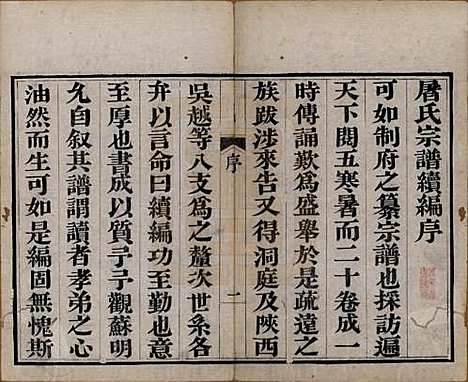 屠氏宗譜續編序
可如制府之纂宗譜也採訪遍
天下閱五寒暑而二十卷成一
時傳誦歎為盛舉於是疏遠之
族跋涉來告又得洞庭及陜西
序
一
吳越等八支為之釐次世系各
弁以言命曰續編功至勤也意
至厚也書成以質予予觀蘇明
允自叙其譜謂讀者孝弟之心
油然而生可如是編固無愧斯